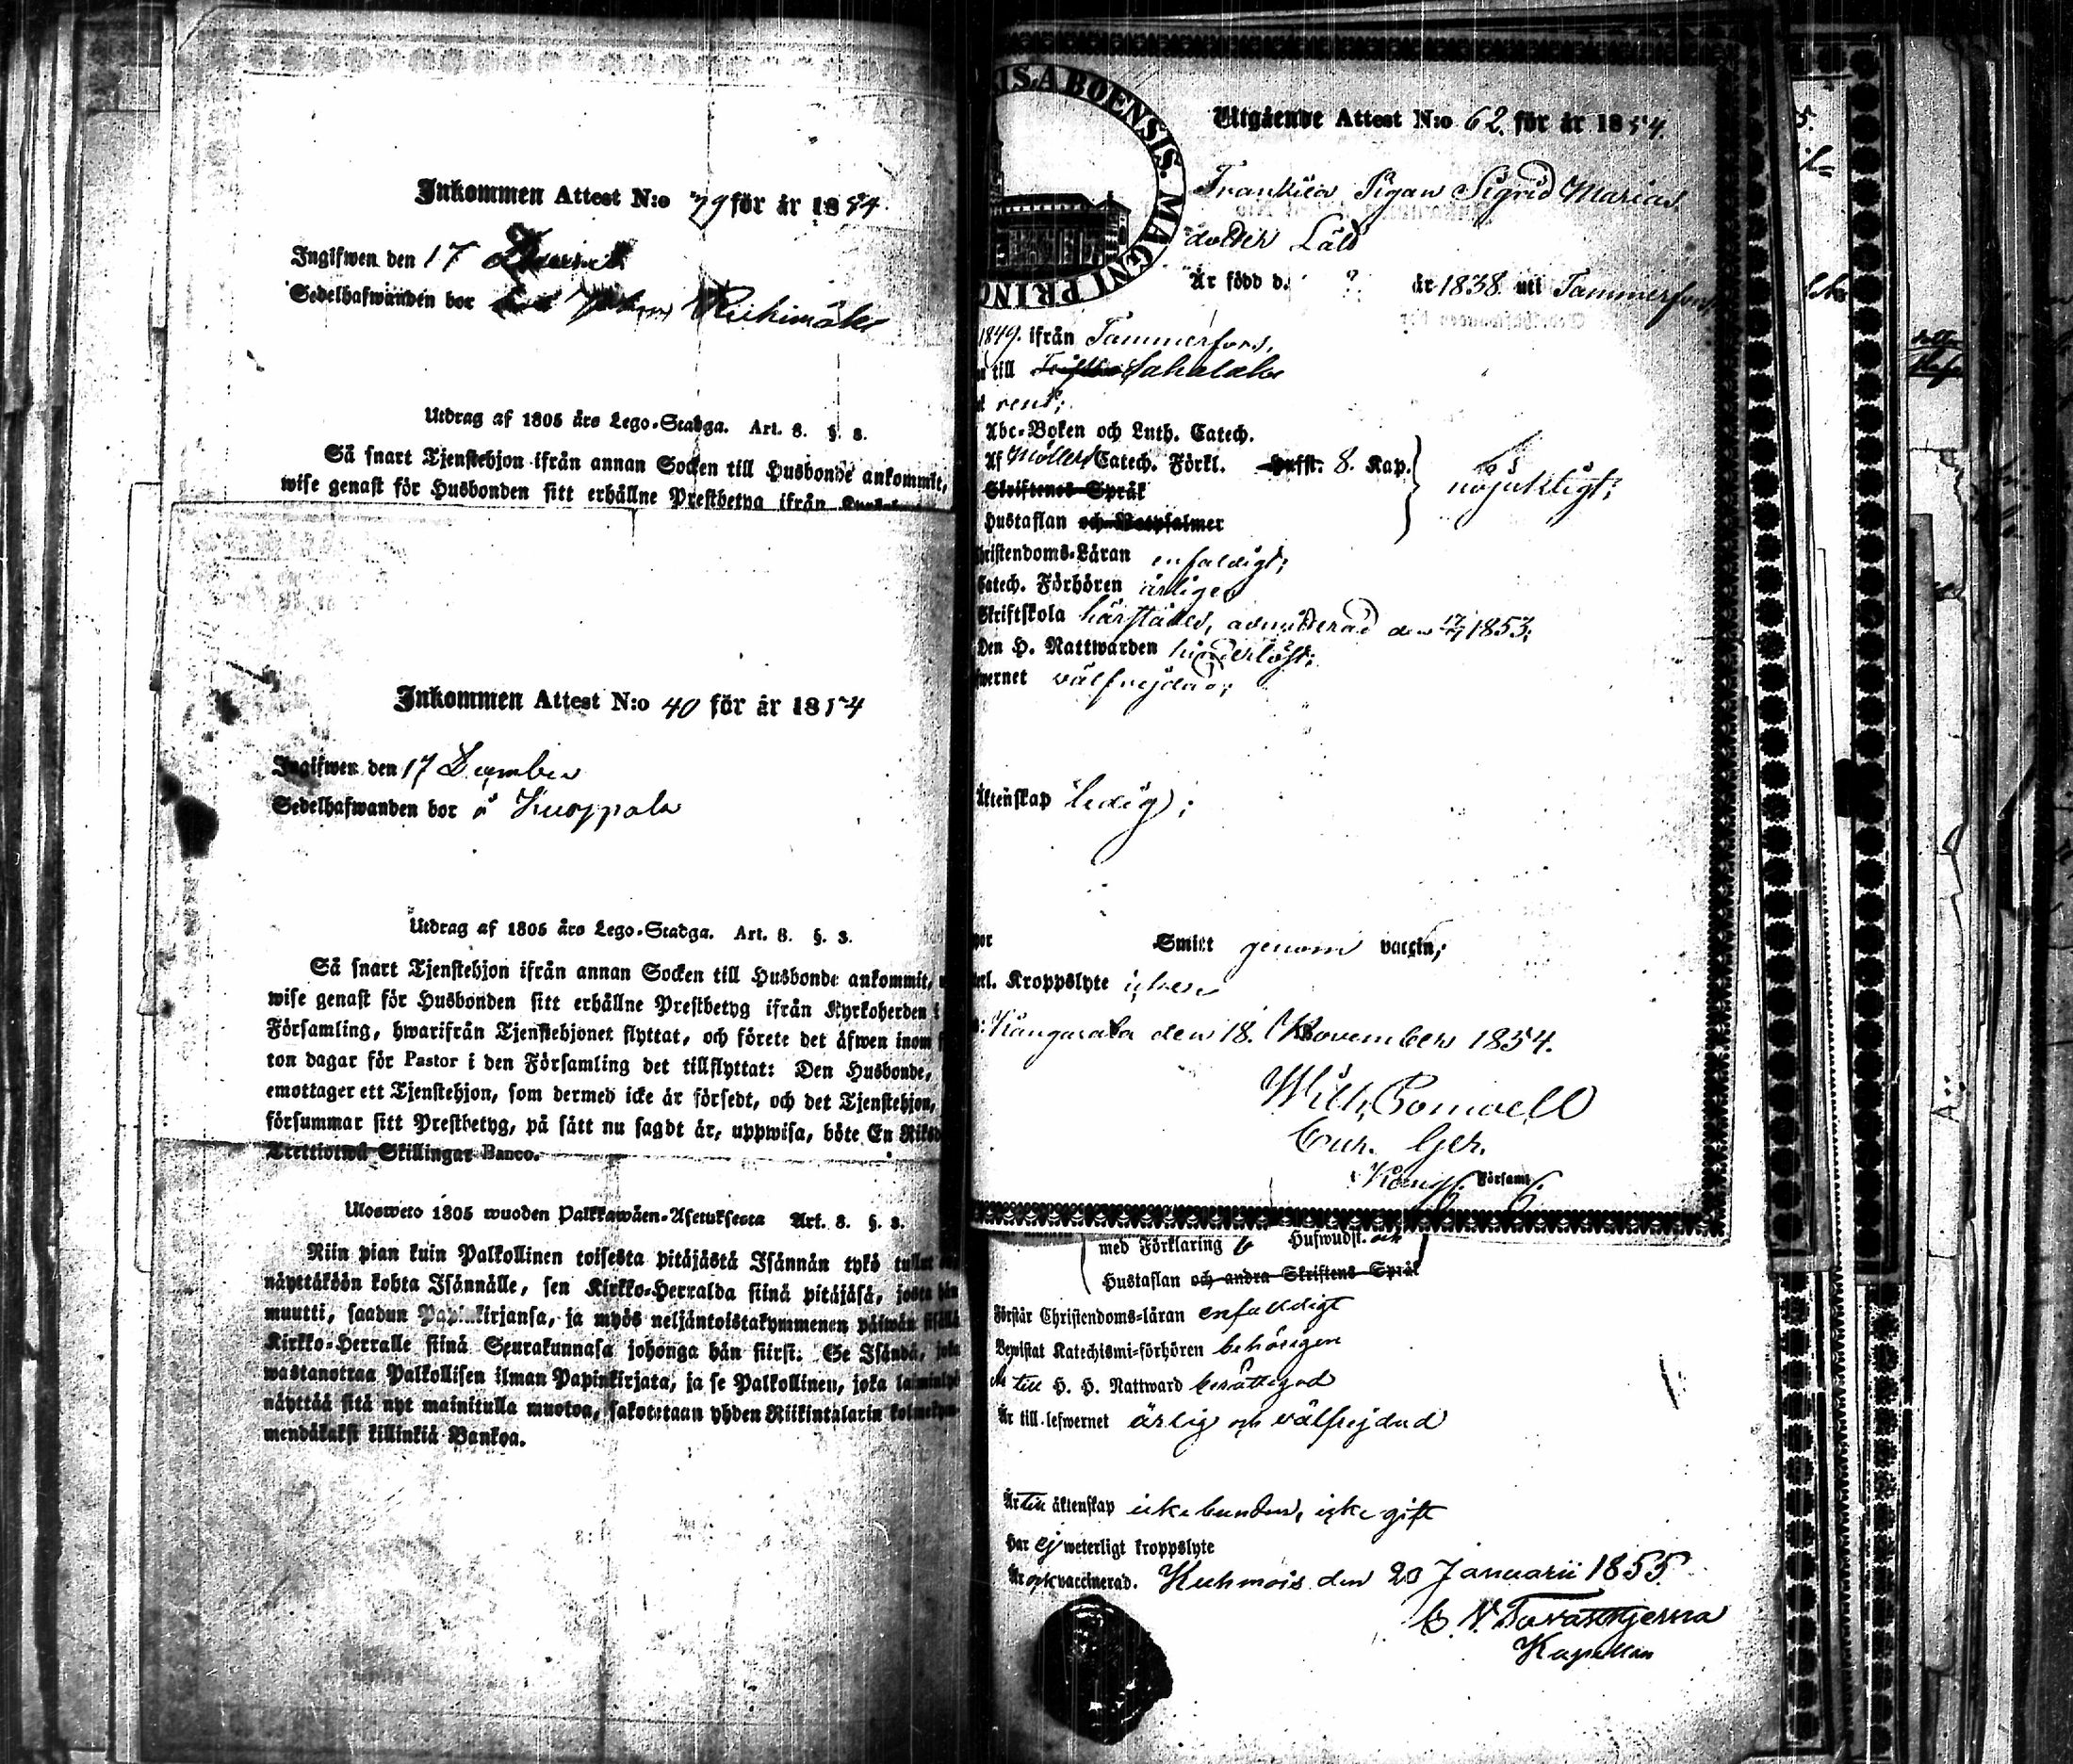 Inkommen Attest N:o 79 för år 1854
Ingifwen den 17
Sedelhafwanden bor
Utdrag af 1805 års Lego-Stadga. Art. 8. §. 3.
Så snart Tjenstehjon ifrån annan Socken till Husbonde ankommit,
wise genast för Husbonden sitt erhållne Prestbetyg ifrån
Inkommen Attest N:o 40 för år 1854
Ingifwen den 17 December
Sedelhafwanden bor å Kuoppala
Utdrag af 1805 års Lego-Stadga. Art. 8. §. 3.
Så snart Tjenstehjon ifrån annan Socken till Husbonde ankommit,
wise genast för Husbonden sitt erhållne Prestbetyg ifrån Kyrkoherden i
Församling, hwarifrån Tjenstehjonet flyttat, och förete det äfwen inom
ton dagar för Pastor i den Församling det tillflyttat: Den Husbonde,
emottager ett Tjenstehjon, som dermed icke är försedt, och det Tjenstehjon,
försummar sitt Prestbetyg, på sätt nu sagdt är, uppwisa, böte En Riksd
Trettiotwå Skillingar Banco.
Ulosweto 1805 wuoden Palkkawäen-Asetuksesta Art. 8. §. 3.
Niin pian kuin Palkollinen toisesta pitäjästä Isännän tykö tullut
näyttäköön kohta Isännälle, sen Kirkko-Herralda siinä pitäjäsä, josta hän
muutti, saadun Papinkirjansa, ja myös neljäntoistakymmenen päiwän sisällä
Kirkko-Herralle siinä Seurakunnasa johonga hän siirsi. Se Isändä, joka
wastanottaa Palkollisen ilman Papinkirjata, ja se Palkollinen, joka laiminlyö
näyttää sitä nyt mainitulla muotoa, sakotetaan yhden Riikintalarin kolmekym-
mendäkaksi killinkiä Bankoa.
IS. ABOENSIS. MAGNI PRINC
Utgående Attest N:o 62. för år 1854.
Pigan Sigrid Marias
dotter Läld
Är född d. ? år 1838 uti Tammerfors,
1849. ifrån Tammerfors,
till Sahalaks
rent;
Abc-Boken och Luth. Catech.
Af Möllers Catech. Förkl. Hufst. 8. Kap.
Skriftenes Språk
nöjaktligt;
Hustaflan och Botpsalmer
hristendoms-Läran enfaldigt;
Catech. Förhören årligen
Skriftskola härstädes, admitterad den 17/7 1853;
Den H. Nattwarden hinderlöst;
wernet välfrejdad;
Äktenskap ledig;
Smitt genom vaccin;
erl. Kroppslyte ickese
Kangasala den 18. November 1854.
Wilh. Bonsdell
Cur. Ger.
Kang Församl.
med Förklaring 6 Hufwudst. och
Hustaflan och andra Skriftens Språk
Förstår Christendoms-läran enfaldigt
Bewistat Katechismi-förhören behörigen
Är till H. H. Nattward berättigad
Är till lefwernet ärlig och välfrejdad
Är till äktenskap icke bunden, icke gift
Har ej weterligt kroppslyte
Är ock vaccinerad. Kuhmois den 20 Januarii 1855.
C. N. Tavaststjerna
Kapellan